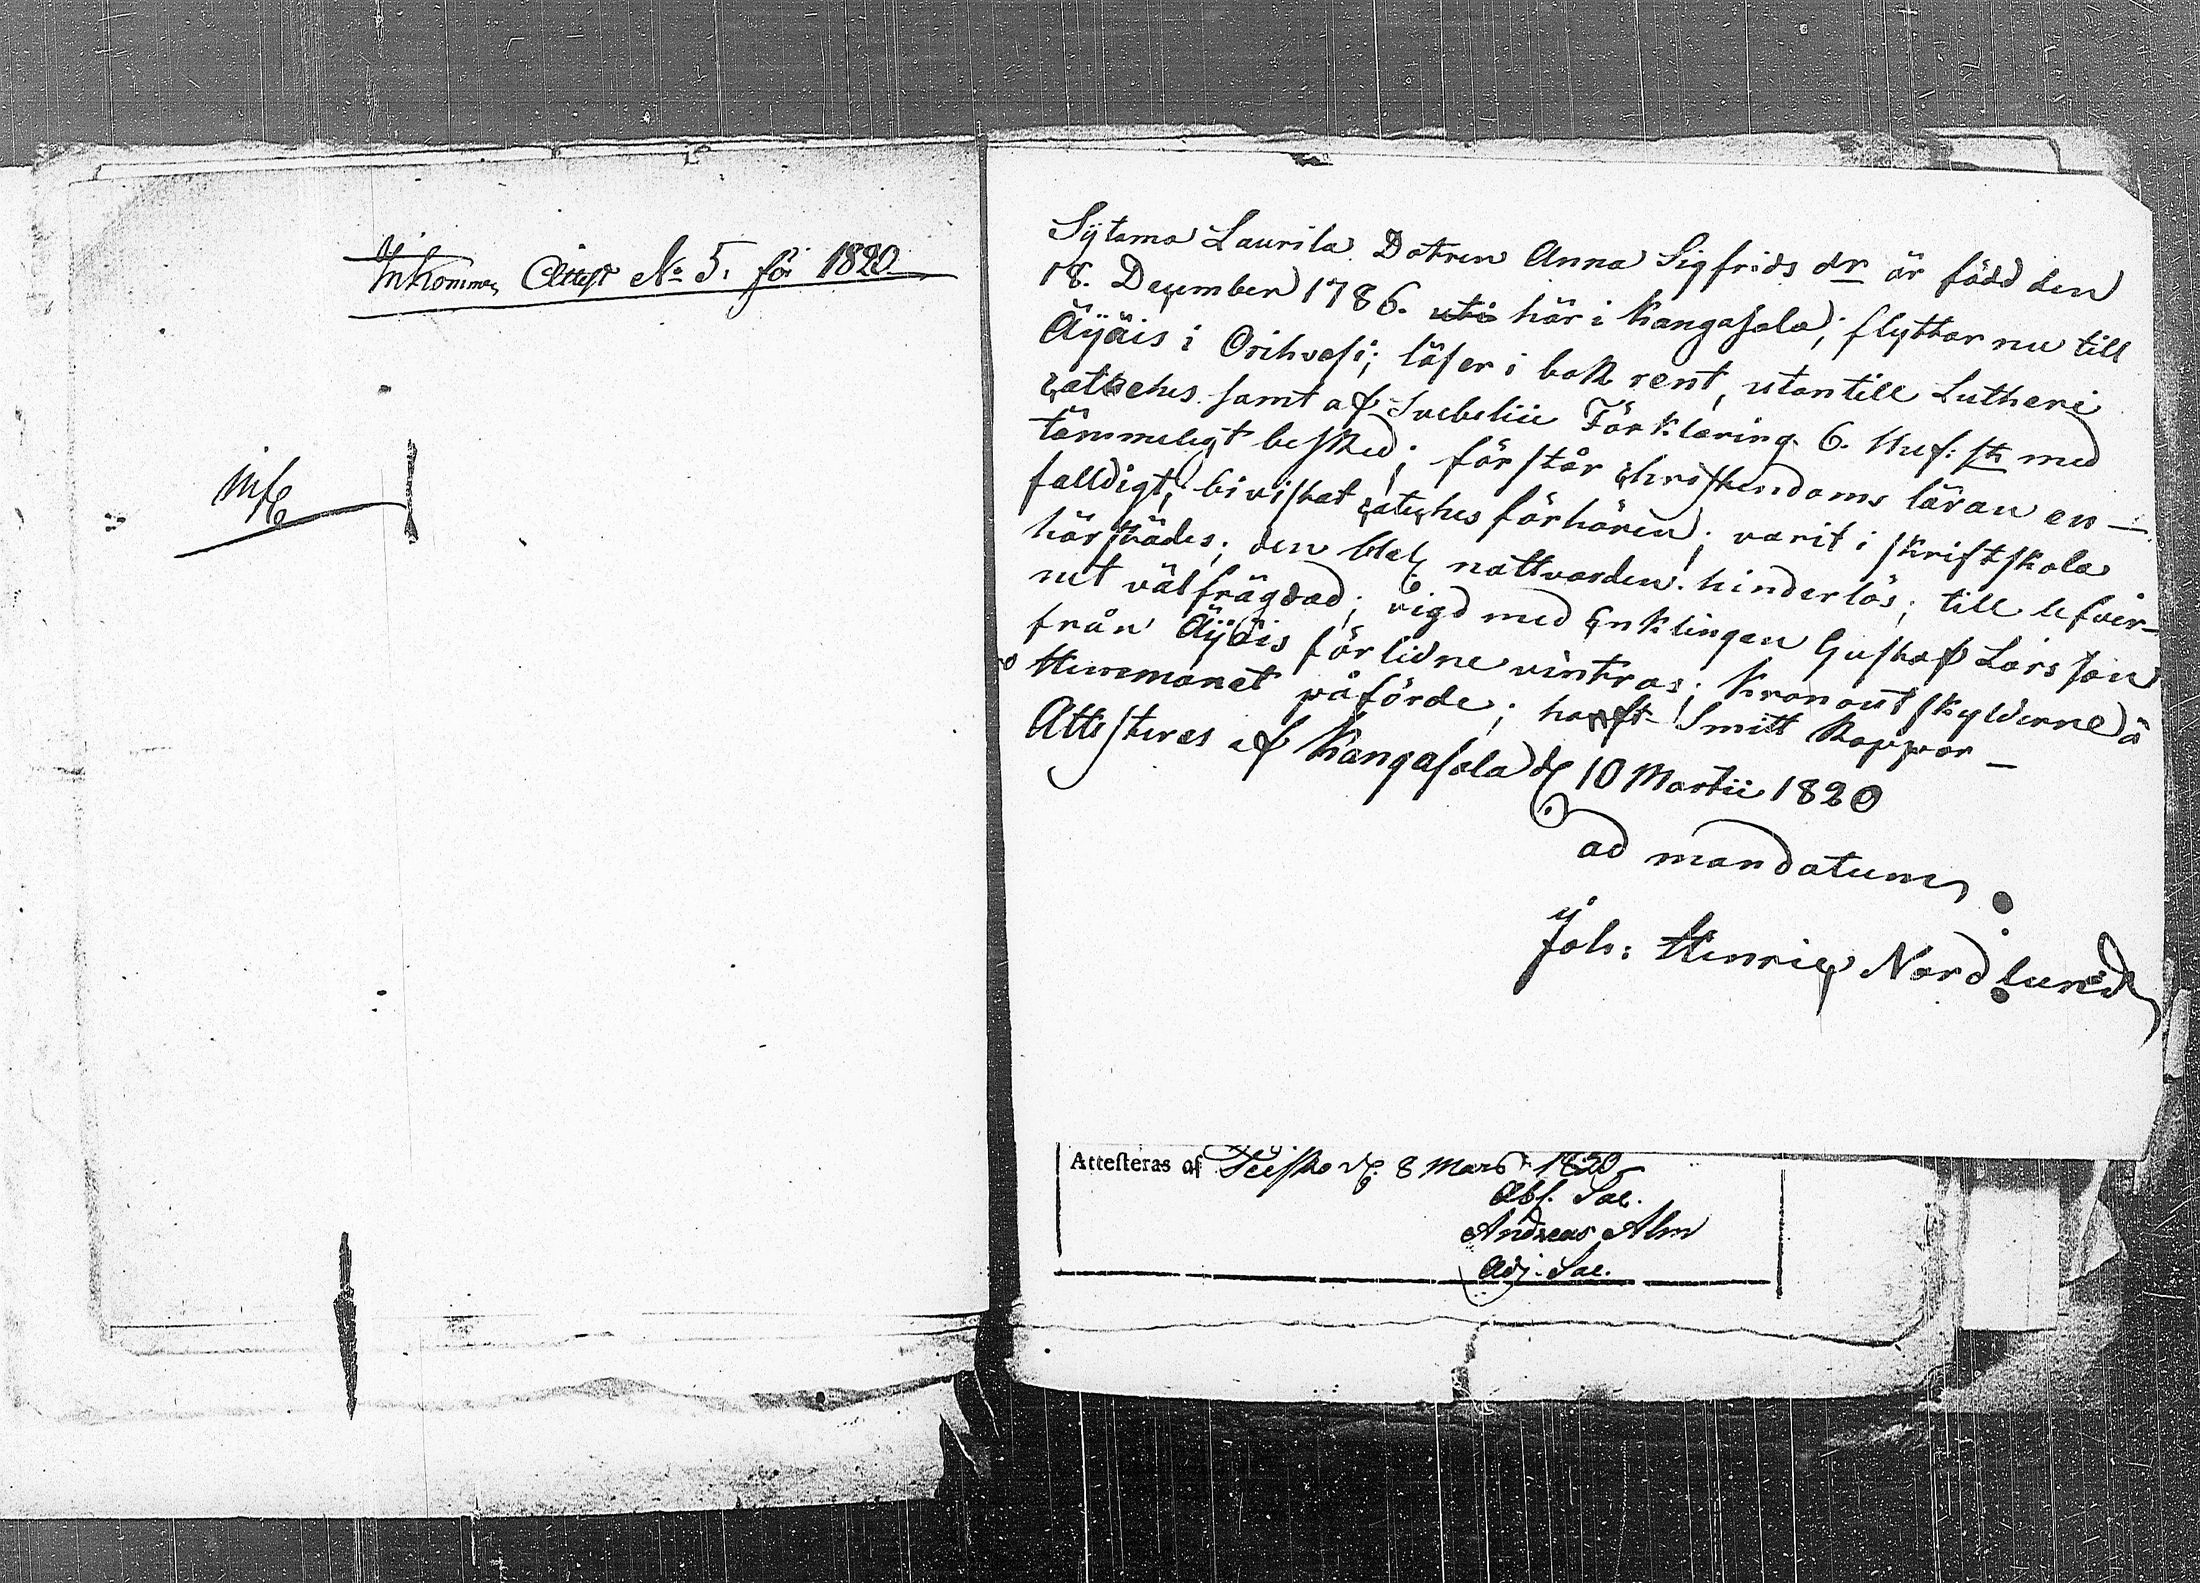 Inkommen Attest No 5. för 1820.
Sÿtama Laurila Dotren Anna Sigfrids dr är född den
18. December 1786. uti här i Kangasala; flyttar nu till
Äÿäis i Orihvesi; läser i bok rent, utantill Lutheri
Cateches samt af Svebelii Förklaring 6. Huf: st: med
tämmeligt besked; förstår Christendoms läran en-
falldigt; bivistat Cateches förhören; varit i skriftskola
härstädes; den H: nattvarden hinderlös; till lefver-
net välfrägdad; vigd med Enklingen Gustaf Larsson
från Äÿäis förlidne vintras; kronoutskylderne å
Hemmanet påförde; haft Smitt Koppor _
Attesteras af Kangasala d 10 Martii 1820
ad mandatum
Joh: Henric Nordlund
Attesteras af Teisko d. 8 Mars 1820
Abs. Sac.
Andreas Alm
Adj. Sac.